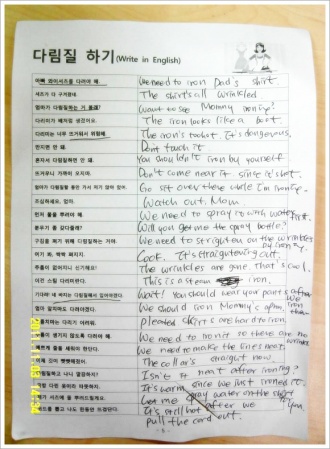 다림질 하기 (Write in English)
아빠 와이셔츠를 다려야 해. We need to iron Dad's shirt.
셔츠가 다 구겨졌네. The shirt's all wrinkled
엄마가 다림질하는 거 볼래? Want to see Mommy ironing?
다리미가 배처럼 생겼어요. The iron looks like a boat.
다리미는 너무 뜨거워서 위험해. The iron's too hot. It's dangerous.
만지면 안 돼. Don't touch it
혼자서 다림질하면 안 돼. You shouldn't iron by yourself
뜨거우니 가까이 오지마. Don't come near it since it's hot.
엄마가 다림질할 동안 가서 저기 앉아 있어. Go sit over there while I'm ironing.
조심하세요, 엄마. Watch out, Mom.
먼저 물을 뿌려야 해. We need to spray it with water first.
분무기 좀 갖다줄래? Will you get me the spray bottle?
구김을 펴기 위해 다림질하는 거야. We need to straighten out the wrinkles by ironing
여기 봐. 쫙쫙 펴지지. Look. It's straightening out.
주름이 없어지니 신기해요! The wrinkles are gone. That's cool.
이건 스팀 다리미란다. This is a steam iron.
기다려! 네 바지는 다림질해서 입어야겠다. Wait! You should wear your pants after we iron
엄마 옷도 다려야겠다. We should iron Mommy's
pleated skirts are hard to iron.
We need to iron so there are no wrinkles
We need to make the lines neat.
The collar's straight now.
다림질하고 나니 깔끔하지? Isn't it neat after ironing?
It's warm since we just ironed it.
Let me spray water on the shirt
It's still hot after we iron.
pull the cord out.
- 6 -
2011/11/03 14:34